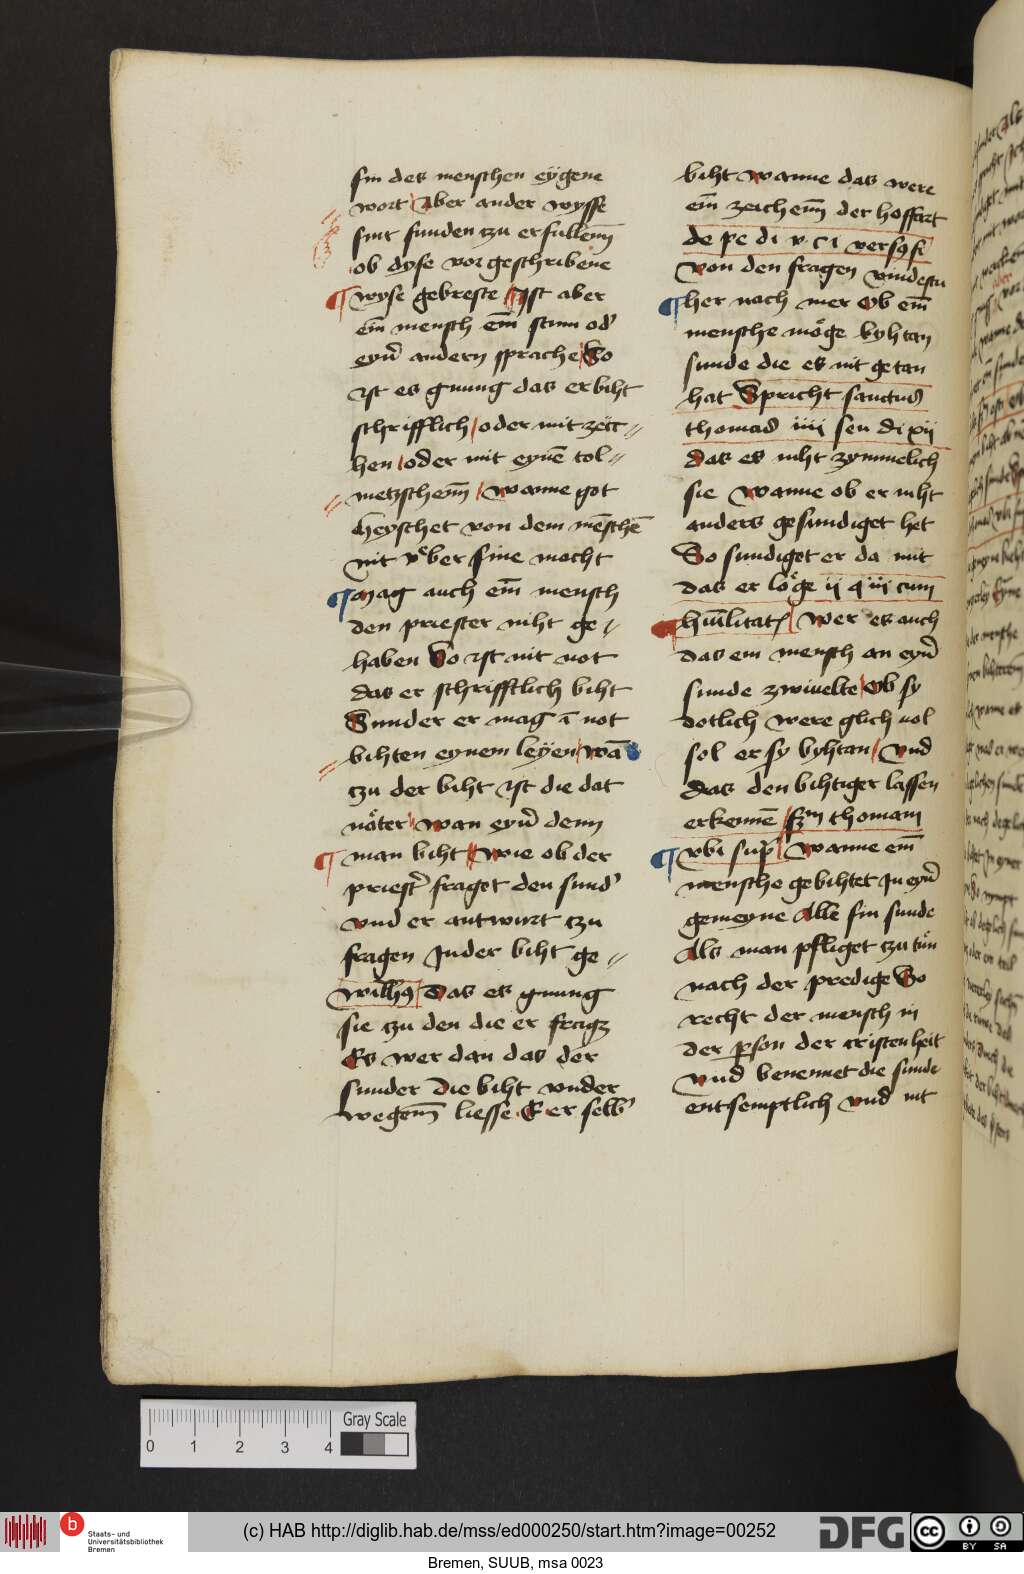 sin des menschen eÿgene
wort Aber ander wysse
sint sunden czu erfullenn̄
ob dyse vor geschribene
¶ wyse gebreste Ist aber
ein mensch ein̄ stum od'
eyn̄ andern sprache So
ist es gnung das er biht
schrifflich oder mit zëic=
hen oder mit eynē tol=
metzschenn̄ wanne got
heyschet von dem mēschē
nit vͤber sine macht
¶ Mag auch ein̄ mensch
den priester niht ge=
haben So ist nit not
das er schrifftlich biht
Sunder er mag ī not
bihten eynem leÿen wā
czu der biht ist die dat
nöter wan eyn̄ denn
¶ man biht wie ob der
priest' fraget den sund'
vnd er antwurt czu
fragen In der biht ge=
wilh9 Das es gnung
sie czu den die er fragz
Es wer dan das der
sunder die biht vnder
wegenn̄ liesse E er selb'
biht wanne das were
ein̄ zeichenn̄ der hoffart
de pe di v c i vers9 fi
von den fragen vindestu
¶ her nach mer Ob ein̄
mensche möge byhtan
sunde die es nit getan
hat Spricht sanctus
thomas iiii sen di xvij
das es niht zymmelich
sie wanne ob er niht
anders gesundiget het
So sundiget er da mit
das er löge ij q iij cum
¶ hūilitat' wer es auch
das ein mensch an eyn̄
sunde zwiuelte Ob sy
dotlich were glich uol
sol er sy byhtan vnd
das den bihtiger lassen
erkennē scdm thomam
¶ vbi sup̄ wanne ein̄
mensche gebihtet In eyn̄
gemeyne Alle sin sunde
Als man pfliget czu tün
nach der predige So
recht der mensch in
der p̱son der cristenheit
vnd benennet die sunde
entsemptlich vnd nit
Gray Scale
0 1 2 3 4
b
Staats- und
Universitätsbibliothek
Bremen
(c) HAB http://diglib.hab.de/mss/ed000250/start.htm?image=00252
DFG
cc BY SA
Bremen, SUUB, msa 0023